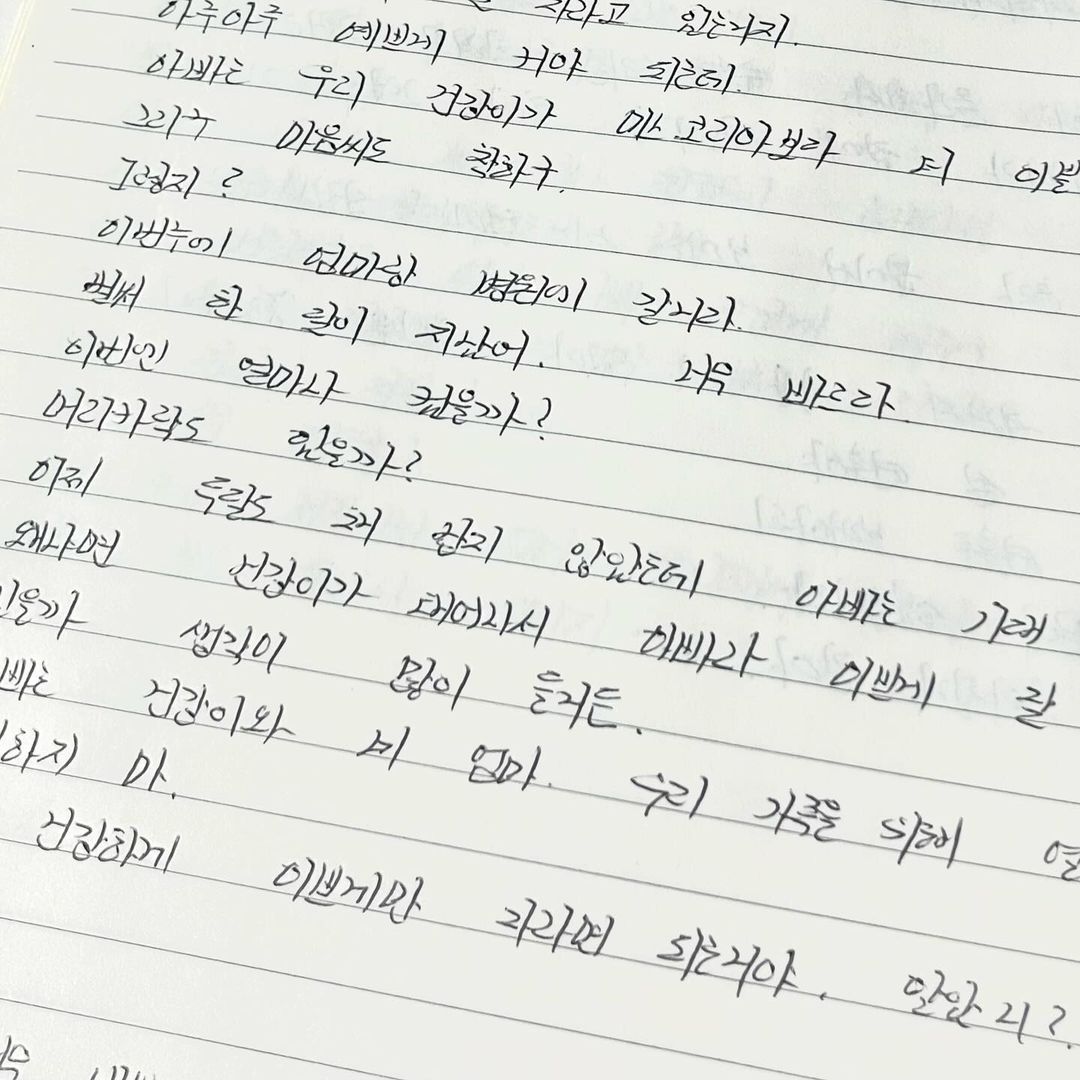 자라고 있는거지.
아주아주 예쁘게 커야 되는데.
아빠는 우리 건강이가 미스코리아보다 더 이쁠
그리구 마음씨도 착하구.
그렇지?
이번주에 엄마랑 병원에 갈거다.
벌써 한 달이 지났어. 너무 빠르다.
이번엔 얼마나 컸을까?
머리카락도 있을까?
이제 두달도 채 남지 않았는데 아빠는 기대
왜냐면 건강이가 태어나서 아빠가 이쁘게 잘
있을까 생각이 많이 들거든.
아빠는 건강이와 네 엄마. 우리 가족을 위해 열
하지 마.
건강하게 이쁘게만 자라면 되는거야. 알았지?